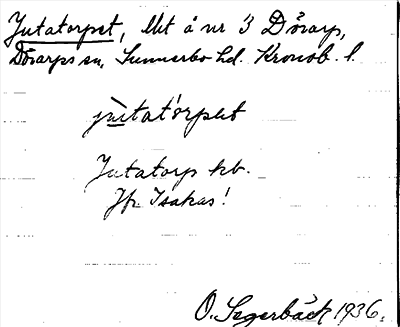 Jutatorpet, lht å nr 3 Dörarp,
Dörarps sn, Sunnerbo hd. Kronob. l.
jùtatórpet
Jutatorp kb.
Jfr Isakas!
O. Segerbäck 1936.